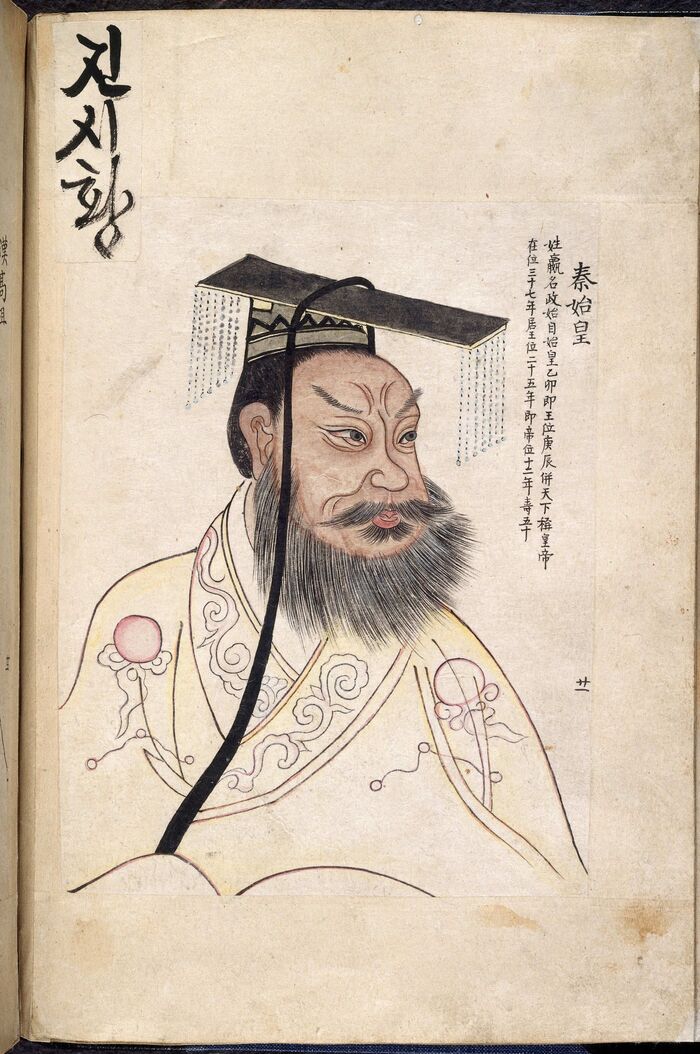 진시황
秦始皇
姓嬴名政始自始皇乙卯即王位庚辰併天下稱皇帝
在位三十七年居王位二十五年即帝位十二年壽五十
廿一
漢高祖